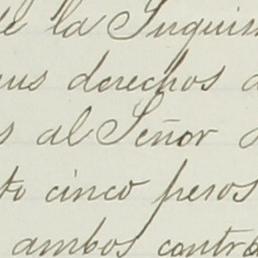 de la Inquisi
sus derechos a
s al Señor
to cinco pesos
ambos contra